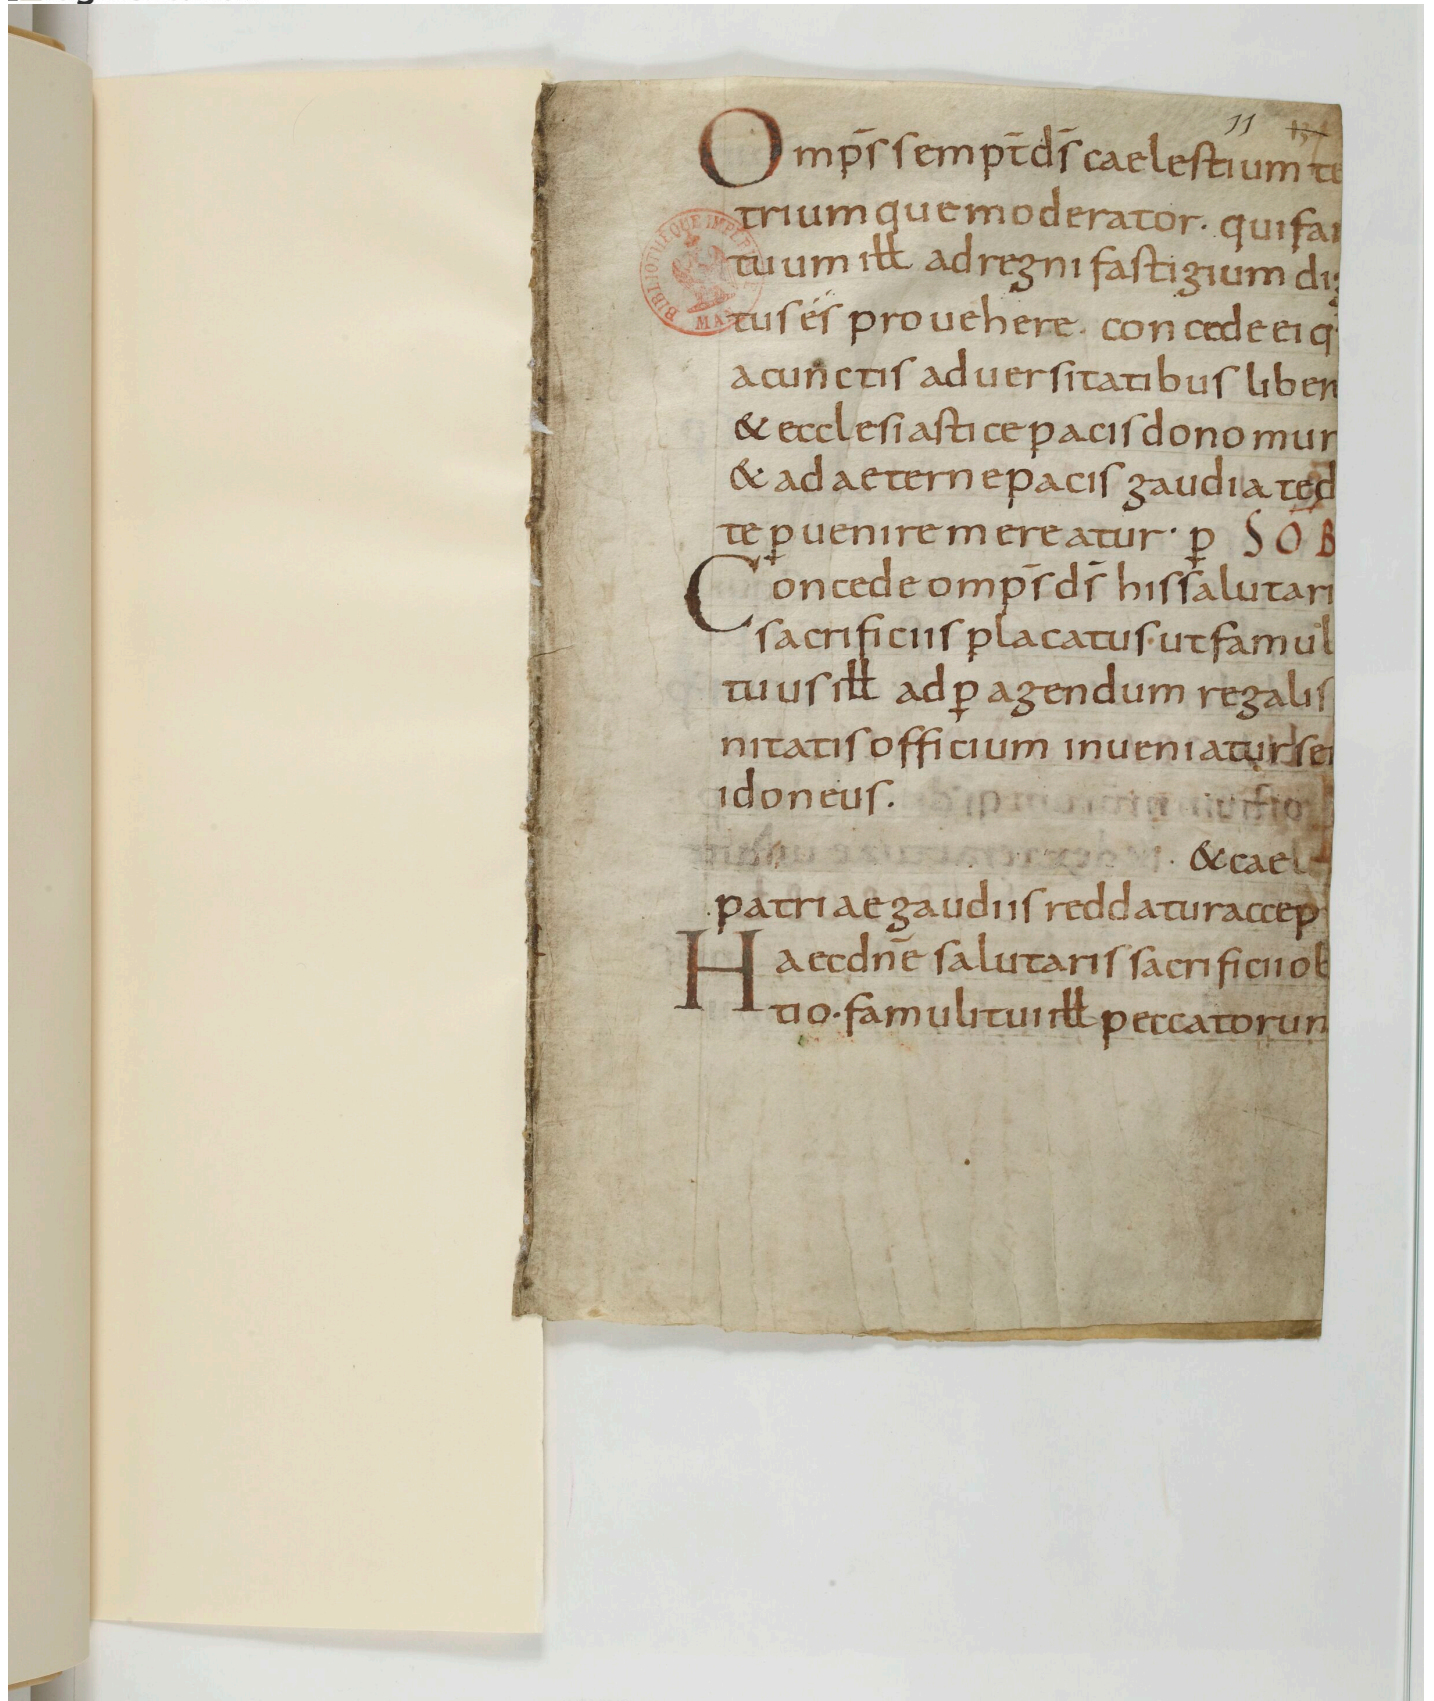 11
Omp̄s semp̄t d̄s caelestium te
triumque moderator. qui fa
tuum ill̵ ad regni fastigium dig
tus ēs provehere. concede ei q
a cunctis adversitatibus liber
& ecclesiastice pacis dono mun
& ad aeterne pacis gaudia te d
te p̲venire mereatur. p̲ SOB
Concede omp̄s d̄s his salutari
sacrificiis placatus. ut famul
tuus ill̵ ad p̲agendum regalis
nitatis officium inveniatur se
idoneus.
& cael
patriae gaudiis reddatur accep
Haec dn̄e salutaris sacrificii ob
tio. famuli tui ill̵ peccatorum
BIBLIOTHÈQUE IMPÉRIALE MAN